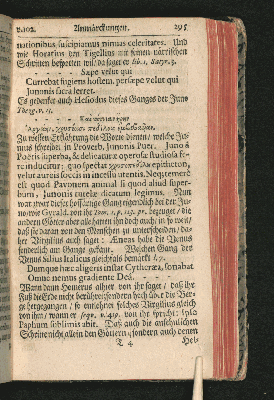 v.102. Anmärckungen. 295
nationibus suscipiamus nimias celeritates. Und
wie Horatius den Tigellius mit seinen närrischen
Schritten beschreiben will/ da sager er lib. 1. Satyr. 3.
- - - - - Sæpe velut qui
Currebat fugiens hostem, persæpe velut qui
Junonis sacra ferret.
Es gedencket auch Hesiodus dieses Ganges der Juno
Theog. v. 11.
Zu wessen Erklährung die Worte dienen/ welche Ju-
nius schreibet in Proverb. Junonis Puer. Juno à
Poëtis superba, & delicatura operosa studiosa fe-
re inducitur; quo spectat epiductum,
velut aureis soccis in incessu utentis. Neq; temerè
est quod Pavonem animal si quod aliud super-
bum, Junonis tutelæ dicatum legimus. Nun
war zwar dieser hoffärtige Gang eigentlich der Ju-
no/ wie Gyrald. von ihr bezeuget/ die
andern Götter aber alle hatten ihn doch auch/ in so weit/
daß sie daran von den Menschen zu unterscheiden/ da-
her Virgilius auch saget: Æneas habe die Venus
hinderlich am Gange gekant. Welchen Gang der
Venus Silius Italicus gleichfals bemärkt l. 7.
Dumque hæc aligeris instat Cytheræa, sonabat
Omne nemus gradiente Deâ. - -
Wann dann Homerus allhier von ihr saget/ daß ihr
Fuß die Erde nicht berühre/ sondern hoch über die Ber-
ge hergegangen/ so entlehnet solches Virgilius gleich
von ihm/ wann er seqv. v. 419. von ihr spricht: Ipsa
Paphum sublimis abit. Daß auch die ansehnlichen
Schritte nicht allein den Göttern/ sondern auch denen
T 4 Hel-